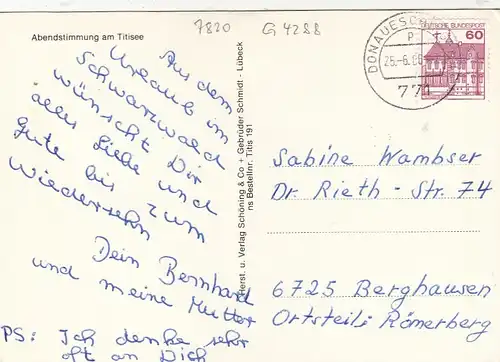 Abendstimmung am Titisee
7820 G 4288
Aus dem
Urlaub im
Schwarzwald
wünscht Dir
alles Liebe und
Gute bis zum
Wiedersehn
Dein Bernhard
und meine Mutter
PS: Ich denke sehr
oft an Dich
Herst. u. Verlag Schöning & Co + Gebrüder Schmidt - Lübeck
ns Bestellnr. Titis 191
DONAUESCH
25.-6.86
771
DEUTSCHE BUNDESPOST
60
Sabine Wambser
Dr. Rieth - Str. 74
6725 Berghausen
Ortsteili Römerberg